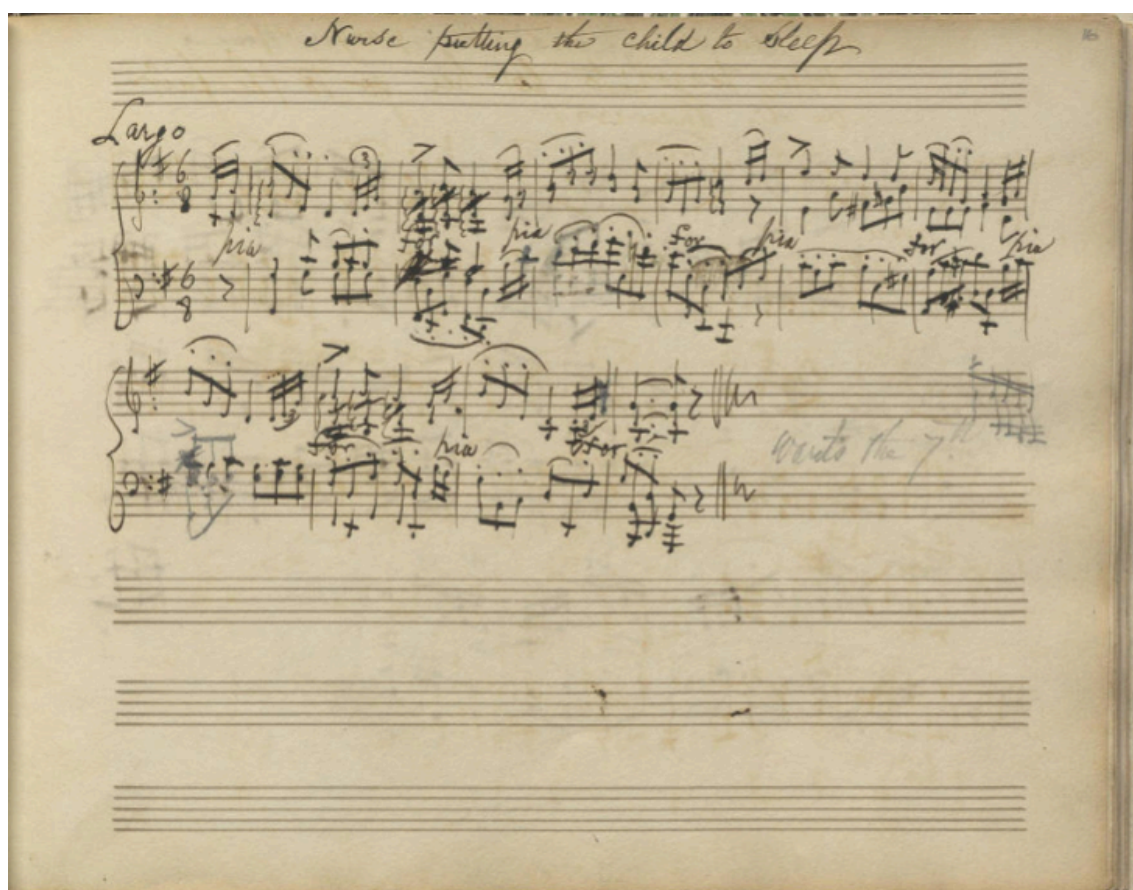 Nurse putting the child to sleep
16
Largo
6 8
3
pia for pia for pia for pia
6 8
for pia for
wants the 7th